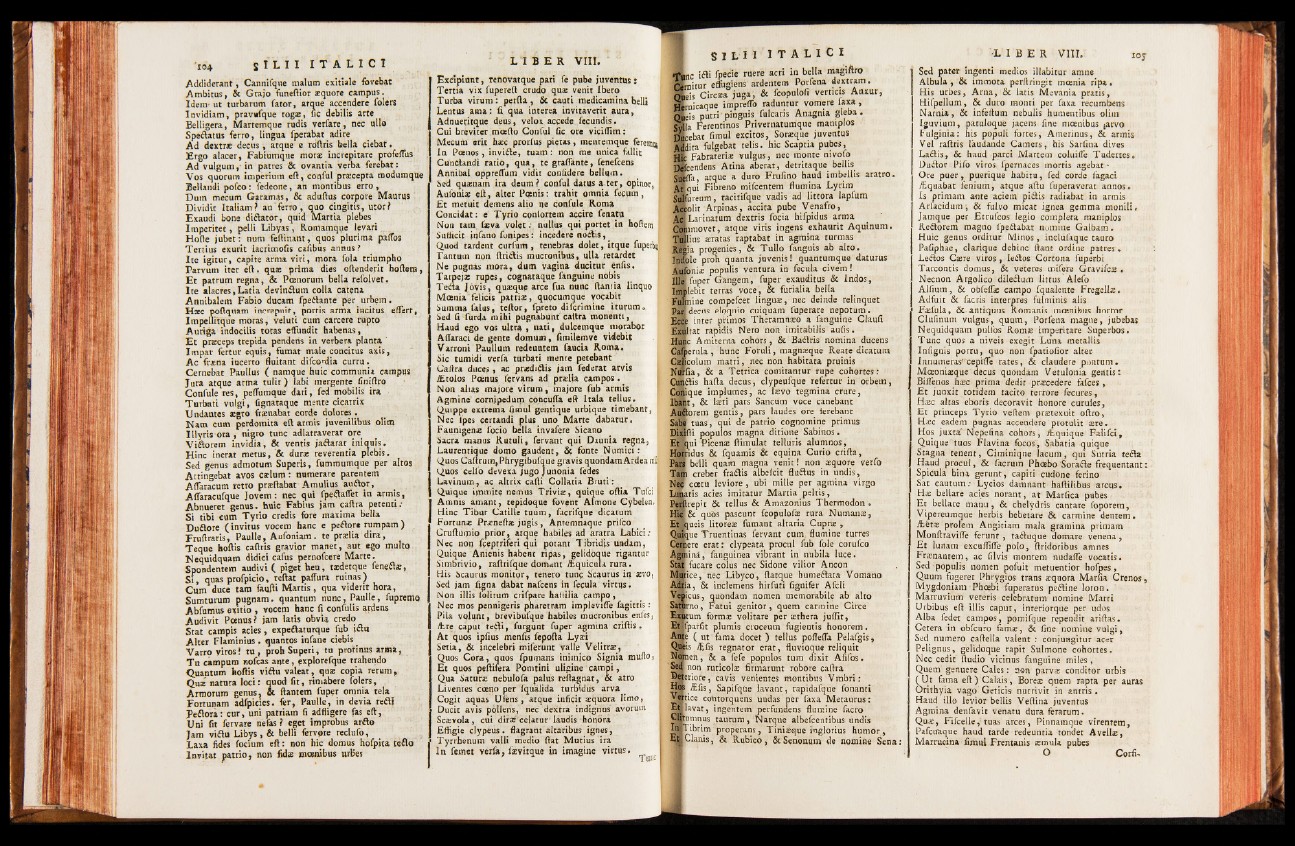 104 SILII ITALICI
Addiderant, Cannisque malum exitiale fovebat
Ambitus, & Grajo funestior æquore campus.
Idem ut turbarum sator, atque accendere solers
Invidiam, pravusque togæ, sic debilis arte
Belligera, Martemque rudis versare, nec ullo
Spectatus ferro, lingua sperabat adire
Ad dextræ decus, atque e rostris bella ciebat.
Ergo alacer, Fabiumque moræ increpitare professus
Ad vulgum, in patres & ovantia verba ferebat:
Vos quorum imperium est, consul præcepta modumque
Bellandi posco: sedeone, an montibus erro,
Dum mecum Garamas, & adustus corpore Maurus
Dividit Italiam? an ferro, quo cingitis, utor?
Exaudi bone dictator, quid Martia plebes
Imperitet, pelli Libyas, Romamque levari
Hoste jubet: num festinant, quos plurima passos
Tertius exurit lacrimosis casibus annus?
Ite igitur, capite arma viri, mora sola triumpho
Parvum iter est. quæ prima dies ostenderit hostem,
Et patrum regna, & Pœnorum bella resolvet.
Ite alacres, Latia devinctum colla catena
Annibalem Fabio ducam spectante per urbem.
Hæc postquam increpuit, portis arma incitus effert,
Impellitque moras, veluti cum carcere rupto
Auriga indocilis totas effundit habenas,
Et præceps trepida pendens in verbera planta
Impar fertur equis, fumat male concitus axis,
Ac fræna incerto fluitant discordia curru.
Cernebat Paullus (namque huic communia campus
Jura atque arma tulit) labi mergente sinistro
Consule res, pessumque dari, sed mobilis ira
Turbati vulgi, signataque mente cicatrix
Undantes ægro frænabat corde dolores.
Nam cum perdomita est armis juvenilibus olim
Illyris ora, nigro tunc adlatraverat ore
Victorem invidia, & ventis jactarat iniquis.
Hinc inerat metus, & duræ reverentia plebis.
Sed genus admotum Superis, summumque per altos
Attingebat avos cælum: numerare parentem
Assaracum retro præstabat Amulius auctor,
Assaracusque Jovem: nec qui spectasset in armis,
Abnueret genus. huic Fabius jam castra petenti:
Si tibi cum Tyrio credis fore maxima bella
Ductore (invitus vocem hanc e pectore rumpam)
Frustraris, Paulle, Ausoniam. te prælia dira,
Teque hostis castris gravior manet, aut ego multo
Nequidquam didici casus prænoscere Marte.
Spondentem audivi (piget heu, tædetque senectæ,
Si, quas prospicio, restat passura ruinas)
Cum duce tam fausti Martis, qua viderit hora,
Sumturum pugnam. quantum nunc, Paulle, supremo
Absumus exitio, vocem hanc si consulis ardens
Audivit Pœnus? jam latis obvia credo
Stat campis acies, expectaturque sub ictu
Alter Flaminius. quantos insane ciebis
Varro viros! tu, proh Superi, tu protinus arma,
Tu campum noscas ante, exploresque trahendo
Quantum hostis victu valeat, quæ copia rerum,
Quæ natura loci: quod sit, rimabere solers,
Armorum genus, & stantem super omnia tela
Fortunam adspicies. fer, Paulle, in devia recti
Pectora: cur, uni patriam si adfligere fas est,
Uni sit servare nefas? eget improbus arcto
Jam victu Libys, & belli fervore recluso,
Laxa fides socium est: non hic domus hospita tecto
Invitat patrio, non fidæ mœnibus urbes
LIBER VIII.
Excipiunt, renovatque pari se pube juventus:
Tertia vix superest crudo quæ venit Ibero
Turba virum: persta, & cauti medicamina belli
Lentus ama: si qua interea invitaverit aura,
Adnueritque deus, velox accede secundis.
Cui breviter mœsto Consul sic ore vicissim:
Mecum erit hæc prorsus pietas, mentemque ferentem
In Pœnos, invicte, tuam: non me unica fallit
Cunctandi ratio, qua, te grassante, senescens
Annibal oppressum vidit considere bellum.
Sed quænam ira deum? consul datus a ter, opinor,
Ausoniæ est, alter Pœnis: trahit omnia secum,
Et metuit demens alio ne consule Roma
Concidat: e Tyrio consortem accire senatu
Non tam sæva volet. nullus qui portet in hostem
Sufficit insano sonipes: incedere noctis,
Quod tardent cursum, tenebras dolet, itque superbus
Tantum non strictis mucronibus, ulla retardet
Ne pugnas mora, dum vagina ducitur ensis.
Tarpejæ rupes, cognataque sanguine nobis
Tecta Jovis, quæque arce sua nunc stantia linquo
Mœnia felicis patriæ, quocumque vocabit
Summa salus, testor, spreto discrimine iturum.
Sed si surda mihi pugnabunt castra monenti,
Haud ego vos ultra, nati, dulcemque morabor
Assaraci de gente domum, similemve videbit
Varroni Paullum redeuntem saucia Roma.
Sic tumidi versa turbati mente petebant
Castra duces, ac prædictis jam sederat arvis
Ætolos Pœnus servans ad prælia campos.
Non alias majore virum, majore sub armis
Agmine cornipedum concussa est Itala tellus.
Quippe extrema simul gentique urbique timebant,
Nec spes certandi plus uno Marte dabatur.
Faunigenæ socio bella invasere Sicano
Sacra manus Rutuli, servant qui Daunia regna,
Laurentique domo gaudent, & fonte Numici:
Quos Castrum, Phrygibusque gravis quondam Ardea
Quos celso devexa jugo Junonia sedes
Lavinum, ac altrix casti Collatia Bruti:
Quique immite nemus Triviæ, quique ostia Tusci
Amnis amant, tepidoque fovent Almone Cybelen.
Hinc Tibur Catille tuum, sacrisque dicatum
Fortunæ Præneste jugis, Antemnaque prisco
Crustumio prior, atque habiles ad aratra Labici:
Nec non sceptriferi qui potant Tibridis undam,
Quique Anienis habent ripas, gelidoque rigantur
Simbrivio, rastrisque domant Æquicula rura.
His Scaurus monitor, tenero tunc Scaurus in ævo,
Sed jam signa dabat nascens in secula virtus.
Non illis solitum crispare hastilia campo,
Nec mos pennigeris pharetram implevisse sagittis:
Pila volunt, brevibusque habiles mucronibus enses,
Ære caput tecti, surgunt super agmina cristis.
At quos ipsius mensis seposta Lyæi
Setia, & incelebri miserunt valle Velitræ,
Quos Cora, quos spumans inimico Signia musto,
Et quos pestifera Pomtini uligine campi,
Qua Saturæ nebulosa palus restagnat, & atro
Liventes cœno per squalida turbidus arva
Cogit aquas Ufens, atque inficit æquora limo,
Ducit avis pollens, nec dextra indignus avorum
Scævola, cui diræ celatur laudis honora
Effigie clypeus. flagrant altaribus ignes,
Tyrrhenum valli medio stat Mutius ira
In semet versa, sævitque in imagine virtus.
Tunc
SILII ITALICI
Tunc icti specie ruere acri in bella magistro
Cernitur effugiens ardentem Porsena dextram.
Queis Circææ juga, & scopulosi verticis Anxur,
Hernicaque impresso raduntur vomere saxa,
Queis putri pinguis sulcatis Anagnia gleba.
Sylla Ferentinos Privernatumque maniplos
Ducebat simul excitos, Soræque juventus
Addita fulgebat telis. hic Scaptia pubes,
Hic Fabrateriæ vulgus, nec monte nivoso
Descendens Atina aberat, detritaque bellis
Suessa, atque a duro Frusino haud imbellis aratro.
At qui Fibreno miscentem flumina Lyrim
Sulfureum, tacitisque vadis ad littora lapsum
Accolit Arpinas, accita pube Venafro,
Ac Larinatum dextris socia hispidus arma
Commovet, atque viris ingens exhaurit Aquinum.
Tullius æratas raptabat in agmina turmas
Regia progenies, & Tullo sanguis ab alto.
Indole proh quanta juvenis! quantumque daturus
Ausoniæ populis ventura in secula civem!
Ille super Gangem, super exauditus & Indos,
Implebit terras voce, & furialia bella
Fulmine compescet linguæ, nec deinde relinquet
Par decus eloquio cuiquam superate nepotum.
Ecce inter primos Theramnæo a sanguine Clausi
Exultat rapidis Nero non imitabilis ausis.
Hunc Amiterna cohors, & Bactris nomina ducens
Casperula, hunc Foruli, magnæque Reate dicatum
Cœlicolum matri, nec non habitata pruinis
Nursia, & a Tetrica comitantur rupe cohortes:
Cunctis hasta decus, clypeusque refertur in orbem,
Conique implumes, ac lævo tegmina crure,
Ibant, & læti pars Sancum voce canebant
Auctorem gentis, pars laudes ore ferebant
Sabe tuas, qui de patrio cognomine primus
Dixisti populos magna ditione Sabinos.
Et qui Picenæ stimulat telluris alumnos,
Horridus & squamis & equina Curio crista,
Pars belli quam magna venit! non æquore verso
Tam creber fractis albescit fluctus in undis,
Nec cœtu leviore, ubi mille per agmina virgo
Lunatis acies imitatur Martia peltis,
Perstrepit & tellus & Amazonius Thermodon.
Hic & quos pascunt scopulosæ rura Numanæ,
Et queis litoreæ fumant altaria Cupræ,
Quique Truentinas servant cum flumine turres
Cernere erat: clypeata procul sub sole corusco
Agmina, sanguinea vibrant in nubila luce.
Stat fucare colus nec Sidone vilior Ancon
Murice, nec Libyco, statque humectata Vomano
Adria, & inclemens hirsuti signifer Ascli
Vepicus, quondam nomen memorabile ab alto
Saturno, Fatui genitor, quem carmine Circe
Exutum formæ volitare per æthera jussit,
Et sparsit plumis croceum fugientis honorem.
Ante (ut fama docet) tellus possessa Pelasgis,
Queis Æsis regnator erat, fluvioque reliquit
Nomen, & a sese populos tum dixit Asisos.
Sed non ruricolæ firmarunt robore castra
Deteriore, cavis venientes montibus Vmbri:
Hos Æsis, Sapisque lavant, rapidasque sonanti
Vertice contorquens undas per saxa Metaurus:
Et lavat, ingentem perfundens flumine sacro
Clitumnus taurum, Narque albescentibus undis
In Tibrim properans, Tiniæque inglorius humor,
Et Clanis, & Rubico, & Senonum de nomine Sena:
LIBER VIII. 105
Sed pater ingenti medios illabitur amne
Albula, & immota perstringit mœnia ripa.
His urbes, Arna, & lætis Mevania pratis,
Hispellum, & duro monti per saxa recumbens
Narnia, & infestum nebulis humentibus olim
Iguvium, patuloque jacens sine mœnibus arvo
Fulginia: his populi fortes, Amerinus, & armis
Vel rastris laudande Camers, his Sarsina dives
Lactis, & haud parci Martem coluisse Tudertes.
Ductor Piso viros spernaces mortis agebat.
Ore puer, puerique habitu, sed corde sagaci
Æquabat senium, atque astu superaverat annos.
Is primam ante aciem pictis radiabat in armis
Arsacidum, & fulvo micat ignea gemma monili.
Jamque per Etruscos legio completa maniplos
Rectorem magno spectabat nomine Galbam.
Huic genus orditur Minos, inclusique tauro
Pasiphae, clarique dehinc stant ordine patres.
Lectos Cære viros, lectos Cortona superbi
Tarcontis domus, & veteres misere Gravisæ.
Necnon Argolico dilectum littus Aleso
Alsium, & obsessæ campo squalente Fregellæ.
Adfuit & sacris interpres fulminis alis
Fæsula, & antiquus Romanis mœnibus horror
Clusinum vulgus, quum, Porsena magne, jubebas
Nequidquam pulsos Romæ imperitare Superbos.
Tunc quos a niveis exegit Luna metallis
Insignis portu, quo non spatiosior alter
Innumeras cepisse rates, & claudere pontum.
Mæoniæque decus quondam Vetulonia gentis:
Bissenos hæc prima dedit præcedere fasces,
Et junxit totidem tacito terrore secures,
Hæc altas eboris decoravit honore curules,
Et princeps Tyrio vestem prætexuit ostro,
Hæc eadem pugnas accendere protulit ære.
Hos juxta Nepesina cohors, Æquique Falisci,
Quique tuos Flavina focos, Sabatia quique
Stagna tenent, Ciminique lacum, qui Sutria tecta
Haud procul, & sacrum Phœbo Soracte frequentant:
Spicula bina gerunt, capiti cudone ferino
Sat cautum: Lycios damnant hastilibus arcus.
Hæ bellare acies norant, at Marsica pubes
Et bellare manu, & chelydris cantare soporem,
Vipereumque herbis hebetare & carmine dentem.
Æetæ prolem Angitiam mala gramina primam
Monstravisse ferunt, tactuque domare venena,
Et lunam excussisse polo, stridoribus amnes
Frænantem, ac silvis montem nudasse vocatis.
Sed populis nomen posuit metuentior hospes,
Quum fugeret Phrygios trans æquora Marsia Crenos,
Mygdoniam Phœbi superatus pectine loton.
Marruvium veteris celebratum nomine Marri
Urbibus est illis caput, interiorque per udos
Alba sedet campos, pomisque rependit aristas.
Cetera in obscuro famæ, & sine nomine vulgi,
Sed numero castella valent: conjungitur acer
Pelignus, gelidoque rapit Sulmone cohortes.
Nec cedit studio vicinus sanguine miles,
Quem genuere Cales: non parvæ conditor urbis
(Ut fama est) Calais, Boreæ quem rapta per auras
Orithyia vago Geticis nutrivit in antris.
Haud illo levior bellis Vestina juventus
Agmina densavit venatu dura ferarum.
Quæ, Fiscelle, tuas arces, Pinnamque virentem,
Pascuaque haud tarde redeuntia tondet Avellæ,
Marrucina simul Frentanis æmula pubes
O Corfi-